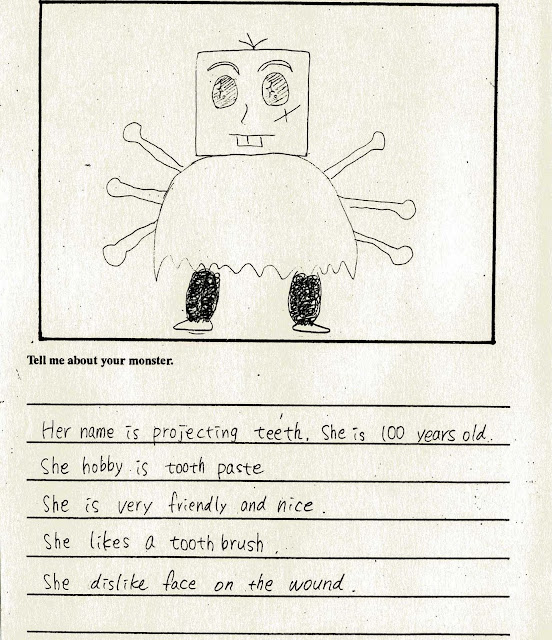 Tell me about your monster.
Her name is projecting teeth. She is 100 years old.
She hobby is tooth paste
She is very friendly and nice.
She likes a tooth brush.
She dislike face on the wound.